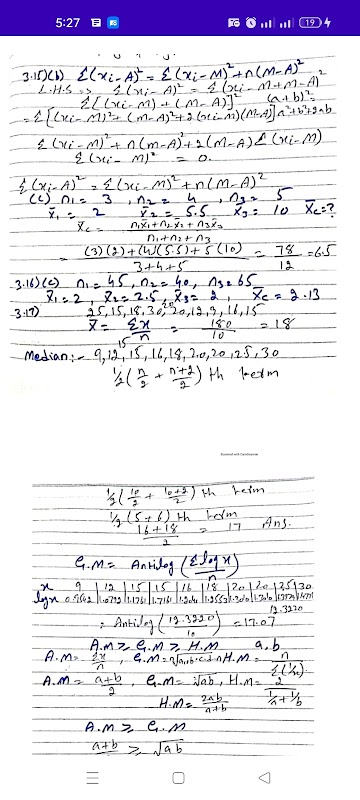 5:27
19
3.15)(b) Σ(xi-A)² = Σ(xi-M)²+n(M-A)²
L.H.S => Σ(xi-A)² = Σ(xi-M+M-A)²
Σ[(xi-M)+(M-A)]² (a+b)²=
=Σ[(xi-M)²+(M-A)²+2(xi-M)(M-A)] a²+b²+2ab
Σ(xi-M)²+n(M-A)²+2(M-A)Σ(xi-M)
Σ(xi-M) = 0.
Σ(xi-A)² = Σ(xi-M)²+n(M-A)²
(c) n₁ = 3, n₂ = 4, n₃ = 5
x̄₁ = 2 x̄₂ = 5.5 x̄₃ = 10 x̄c=?
x̄c = n₁x̄₁+n₂x̄₂+n₃x̄₃
n₁+n₂+n₃
= (3)(2)+(4)(5.5)+5(10) = 78 = 6.5
3+4+5 12
3.16)(c) n₁ = 45, n₂ = 40, n₃ = 65
x̄₁=2, x̄₂=2.5, x̄₃=2, x̄c = 2.13
3.17) 25,15,18,30,20,20,12,9,16,15
x̄ = Σx = 180 = 18
n 10
15
Median:- 9,12,15,16,18,20,20,25,30
½(n/2 + n+2/2) th term
Scanned with CamScanner
½(10/2 + 10+2/2) th term
½(5+6) th term
16+18 = 17 Ans.
2
G.M = Antilog (Σlog x / n)
x 9 | 12 | 15 | 15 | 16 | 18 | 20 | 20 | 25 | 30
log x 0.9542 | 1.0792 | 1.1761 | 1.1761 | 1.2041 | 1.2553
12.3220
= Antilog (12.3220 / 10) = 17.07
A.M ≥ G.M ≥ H.M a,b
A.M = Σx/n, H.M = n / Σ(1/x)
A.M = a+b/2, G.M = √ab, H.M = 2 / 1/a+1/b
H.M = 2ab/a+b
A.M ≥ G.M
a+b/2 ≥ √ab